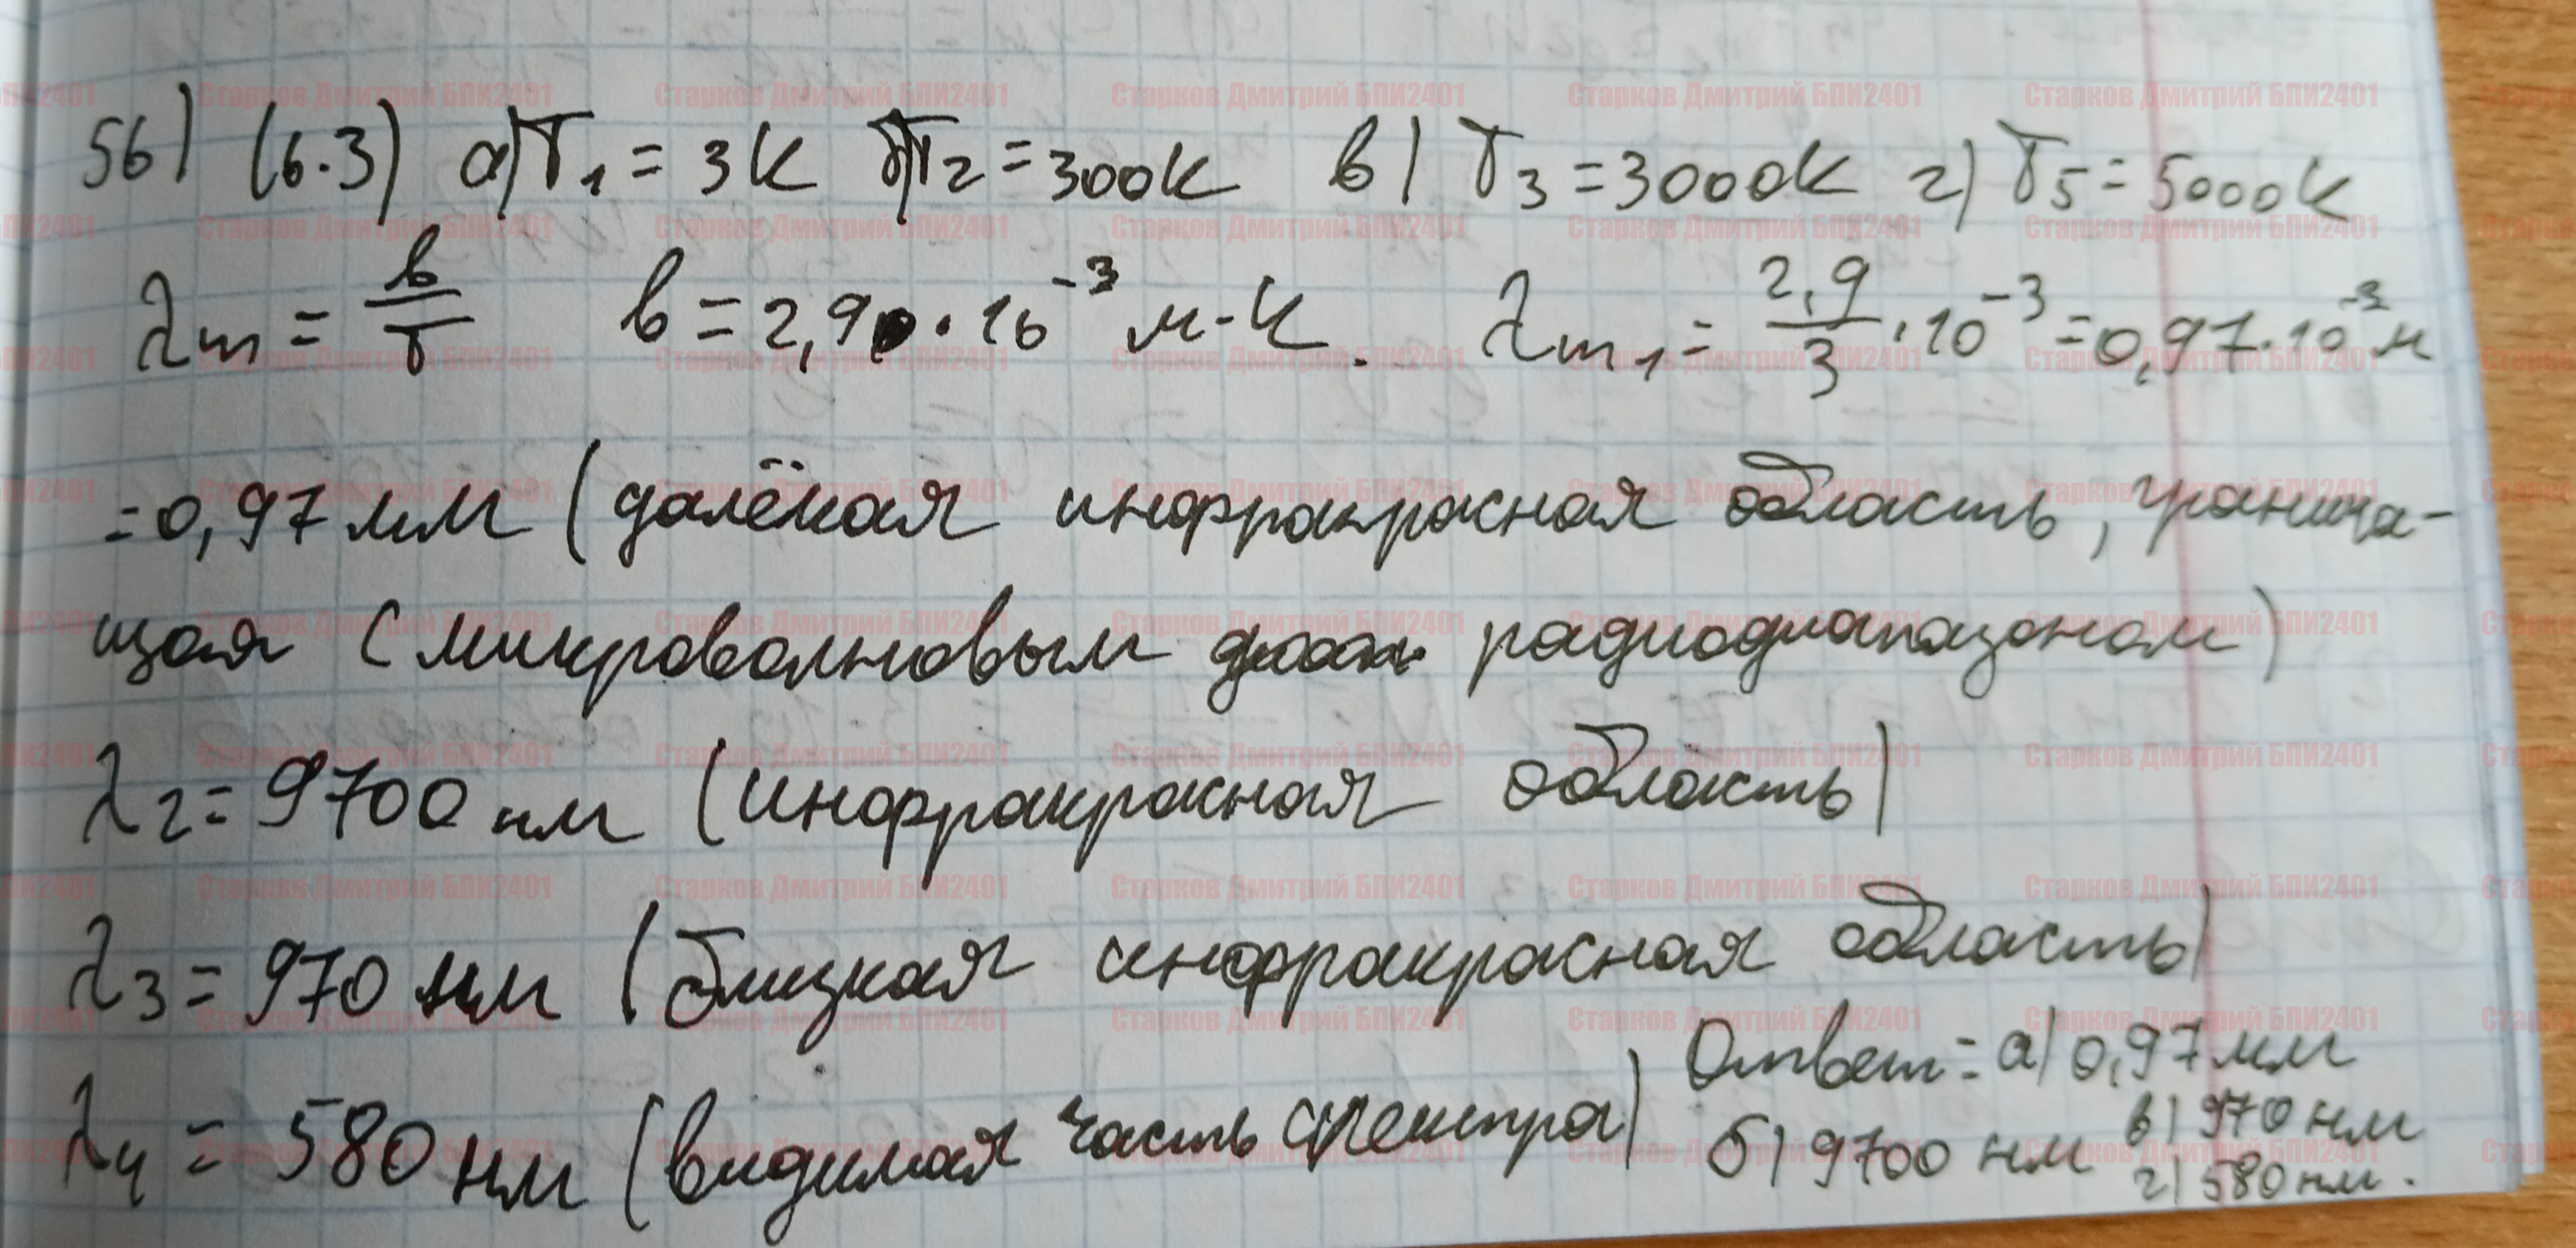 56) (6.3) а) T₁ = 3K б) T₂ = 300K в) T₃ = 3000K г) T₅ = 5000K
λm = в/T в = 2,9 · 10⁻³ м·К. λm₁ = 2,9/3 · 10⁻³ = 0,97 · 10⁻³ м
= 0,97 мм (далёкая инфракрасная область, гранича-
щая с микроволновым радиодиапазоном)
λ₂ = 9700 нм (инфракрасная область)
λ₃ = 970 нм (близкая инфракрасная область)
λ₄ = 580 нм (видимая часть спектра)
Ответ: а) 0,97 мм
б) 9700 нм в) 970 нм
г) 580 нм.
Старков Дмитрий БПИ2401